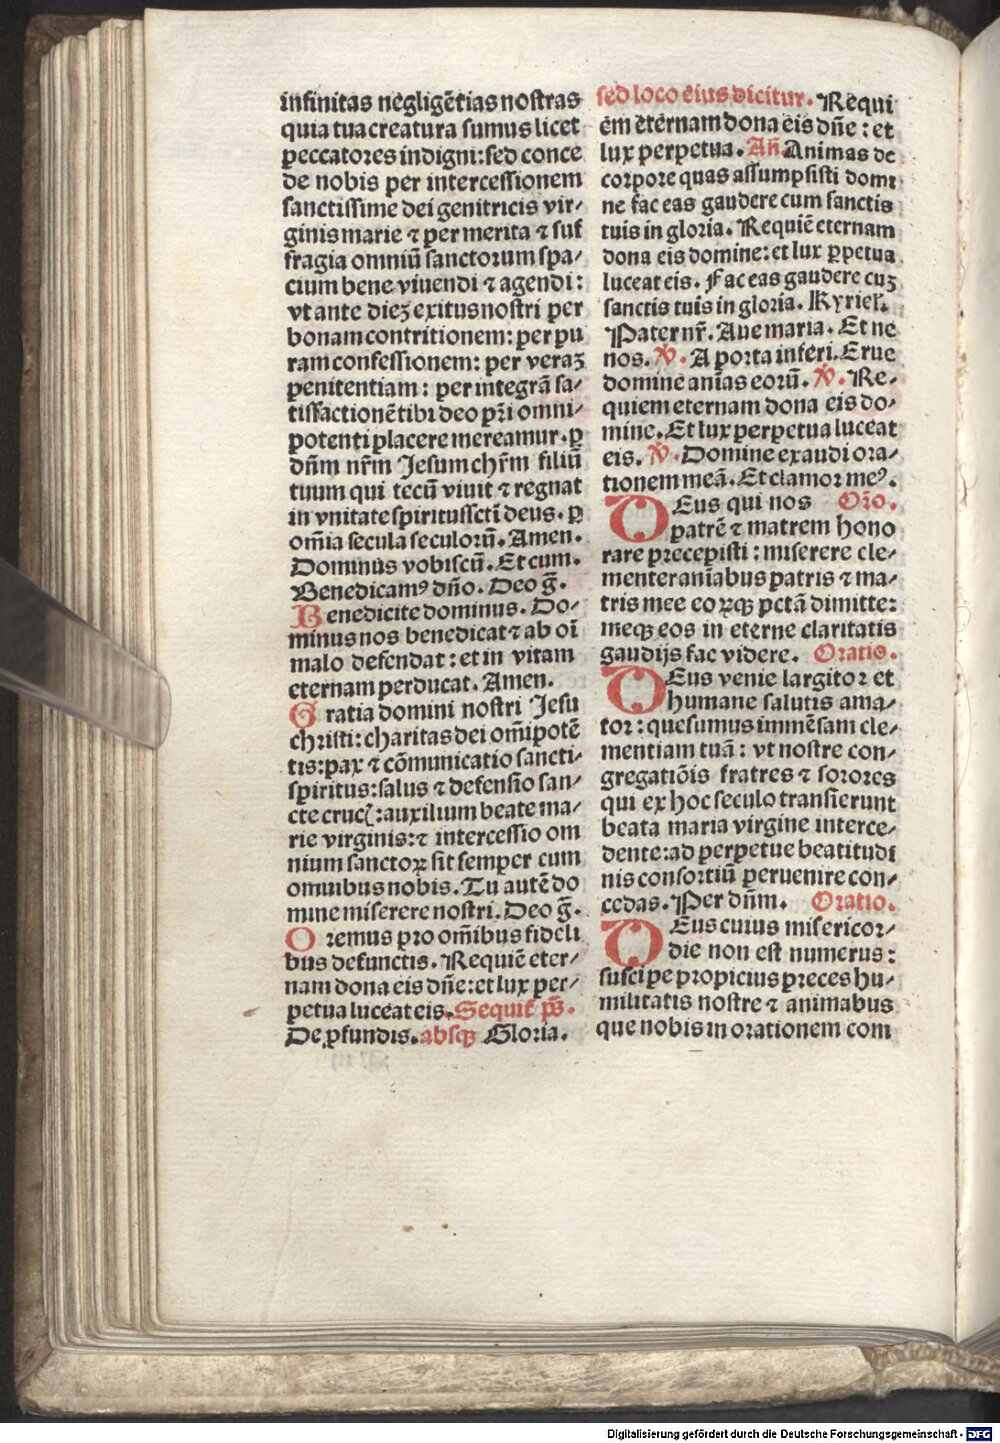 infinitas negligẽtias nostras
quia tua creatura sumus licet
peccatores indigni: sed conce
de nobis per intercessionem
sanctissime dei genitricis vir⸗
ginis marie ⁊ per merita ⁊ suf
fragia omniũ sanctorum spa⸗
cium bene viuendi ⁊ agendi:
vt ante dieꝫ exitus nostri per
bonam contritionem: per pu
ram confessionem: per veraꝫ
penitentiam: per integrã sa⸗
tisfactionẽ tibi deo pr̃i omni⸗
potenti placere mereamur. ꝑ
dñm nr̃m Jesum chr̃m filiũ
tuum qui tecũ viuit ⁊ regnat
in vnitate spiritussctĩ deus. ꝑ
om̃ia secula seculorũ. Amen.
Dominus vobiscũ. Et cum.
Benedicamꝰ dño. Deo g̃.
Benedicite dominus. Do⸗
minus nos benedicat ⁊ ab oĩ
malo defendat: et in vitam
eternam perducat. Amen.
Gratia domini nostri Jesu
christi: charitas dei om̃ipotẽ
tis: pax ⁊ cõmunicatio sancti⸗
spiritus: salus ⁊ defensio san⸗
cte crucꝯ: auxilium beate ma⸗
rie virginis: ⁊ intercessio om
nium sanctoꝝ sit semper cum
omuibus nobis. Tu autẽ do
mine miserere nostri. Deo g̃.
Oremus pro om̃ibus fideli
bus defunctis. Requiẽ eter⸗
nam dona eis dñe: et lux per⸗
petua luceat eis. Sequit̃ ps̃.
De ꝓfundis. absqꝫ Gloria.
sed loco eius dicitur. Requi
em eternam dona eis dñe: et
lux perpetua. Añ. Animas de
corpore quas assumpsisti domi
ne fac eas gaudere cum sanctis
tuis in gloria. Requiẽ eternam
dona eis domine: et lux ꝑpetua
luceat eis. Fac eas gaudere cuꝫ
sanctis tuis in gloria. Kyriel̃.
Pater nr̃. Aue maria. Et ne
nos. ℣. A porta inferi. Erue
domine anĩas eorũ. ℣. Re⸗
quiem eternam dona eis do⸗
mine. Et lux perpetua luceat
eis. ℣. Domine exaudi ora⸗
tionem meã. Et clamor meꝰ.
DEus qui nos Orõ.
patrẽ ⁊ matrem hono
rare precepisti: miserere cle⸗
menter anĩabus patris ⁊ ma⸗
tris mee eoꝝqꝫ pctã dimitte:
meqꝫ eos in eterne claritatis
gaudijs fac videre. Oratio.
DEus venie largitor et
humane salutis ama⸗
tor: quesumus immẽsam cle⸗
mentiam tuã: vt nostre con⸗
gregatiõis fratres ⁊ sorores
qui ex hoc seculo transierunt
beata maria virgine interce⸗
dente: ad perpetue beatitudi
nis consortiũ peruenire con⸗
cedas. Per dñm. Oratio.
DEus cuius misericor⸗
die non est numerus:
suscipe propicius preces hu⸗
militatis nostre ⁊ animabus
que nobis in orationem com
Digitalisierung gefördert durch die Deutsche Forschungsgemeinschaft - DFG